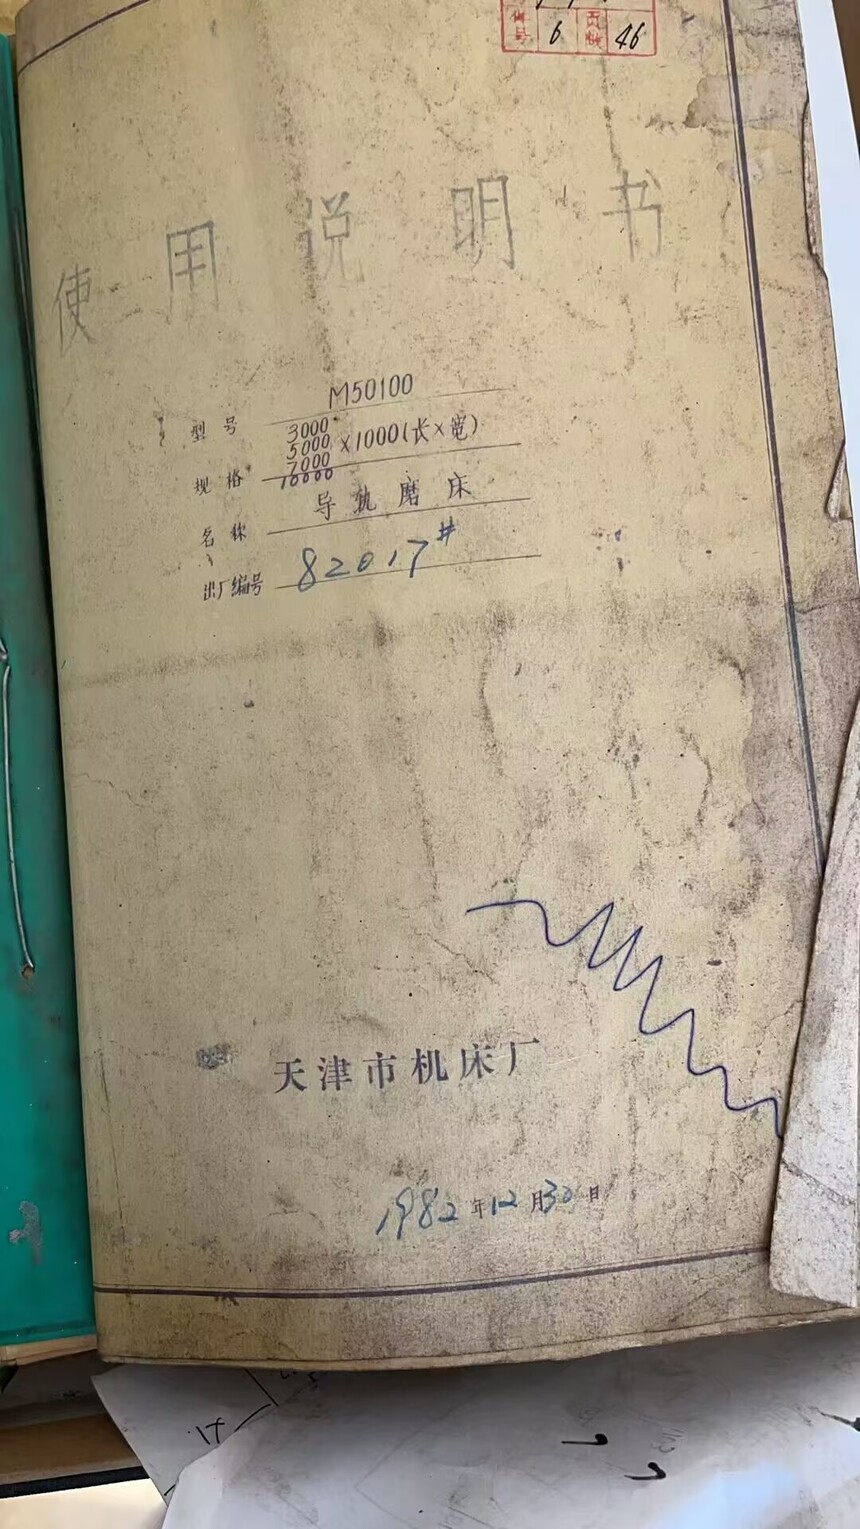 件号 6 页数 46
使用说明书
型号 M50100
规格 3000 5000 7000 10000 ×1000(长×宽)
名称 导轨磨床
出厂编号 82017#
天津市机床厂
1982年12月30日
17.